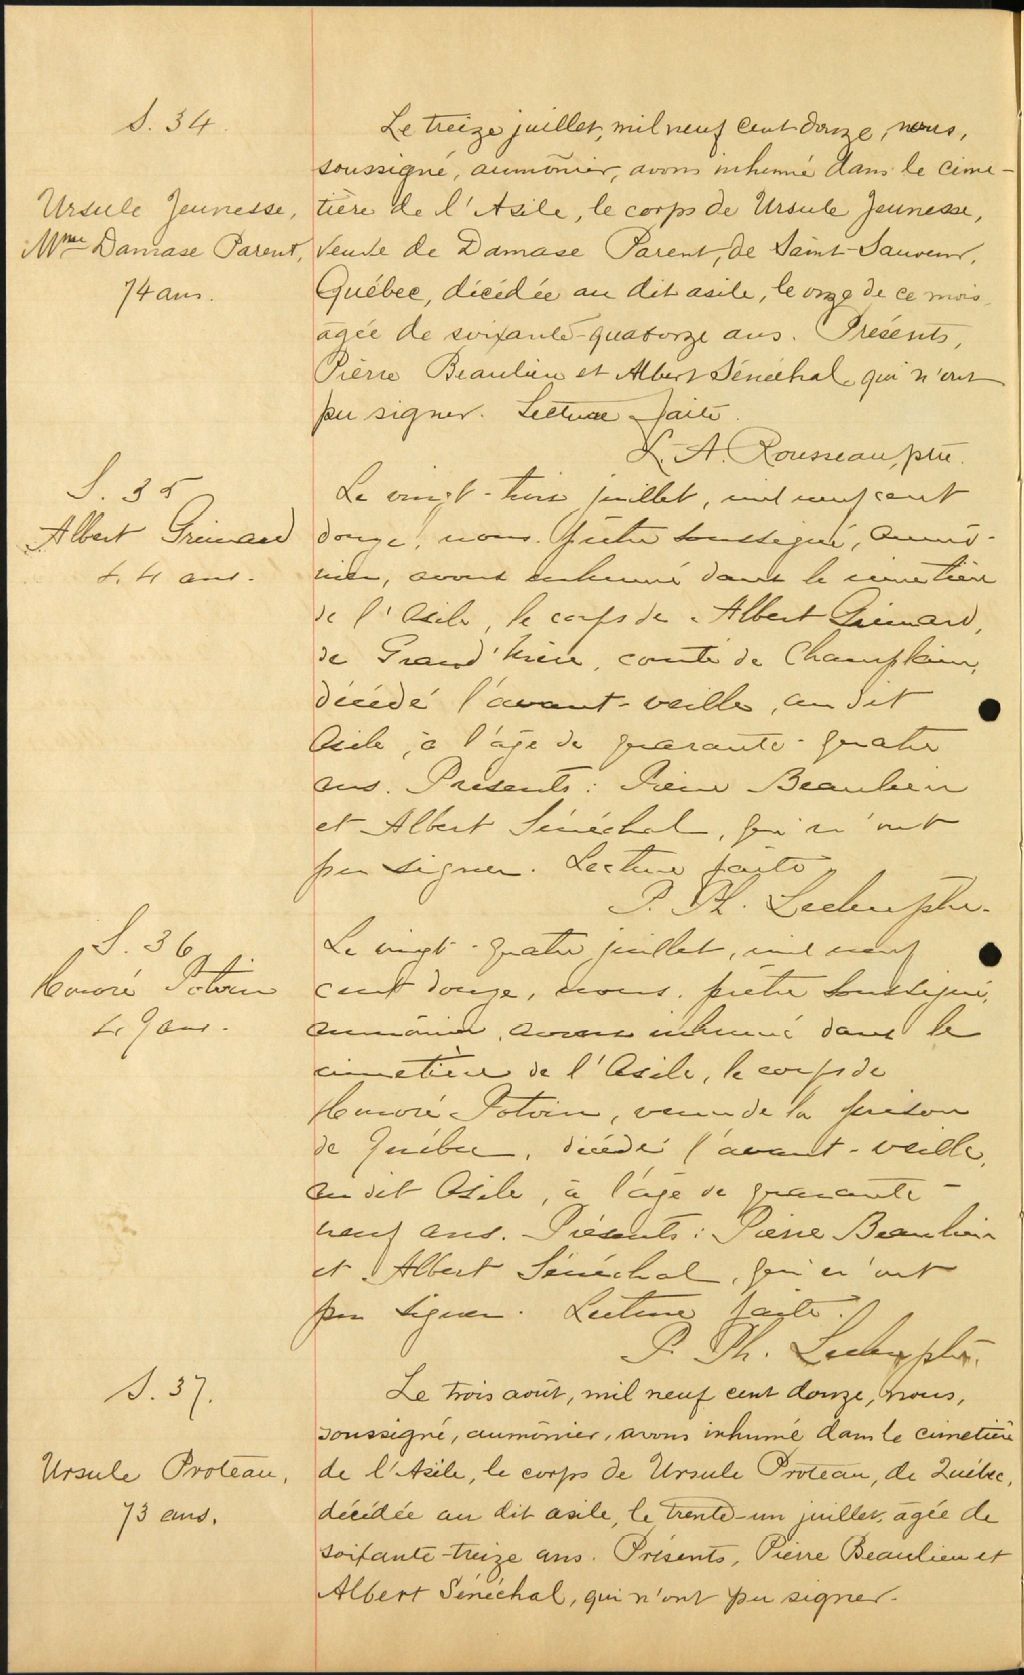 S. 34.
Ursule Jeunesse,
Mme Damase Parent,
74 ans.
Le treize juillet, mil neuf cent douze, nous,
soussigné, aumônier, avons inhumé dans le cime-
tière de l'Asile, le corps de Ursule Jeunesse,
veuve de Damase Parent, de Saint-Sauveur,
Québec, décédée au dit asile, le onze de ce mois,
âgée de soixante-quatorze ans. Présents,
Pierre Beaulieu et Albert Sénéchal qui n'ont
pu signer. Lecture faite.
L. A. Rousseau, ptre.
S. 35
Albert Grimard
44 ans.
Le vingt-trois juillet, mil neuf cent
douze, nous, prêtre soussigné, aumô-
nier, avons inhumé dans le cimetière
de l'Asile, le corps de Albert Grimard,
de Grand'Mère, comté de Champlain,
décédé l'avant-veille, au dit
Asile, à l'âge de quarante-quatre
ans. Présents: Pierre Beaulieu
et Albert Sénéchal, qui n'ont
pu signer. Lecture faite.
P. Ph. Leclerc ptre.
S. 36
Honoré Potvin
49 ans.
Le vingt-quatre juillet, mil neuf
cent douze, nous, prêtre soussigné,
aumônier, avons inhumé dans le
cimetière de l'Asile, le corps de
Honoré Potvin, venu de la prison
de Québec, décédé l'avant-veille,
au dit Asile, à l'âge de quarante-
neuf ans. Présents: Pierre Beaulieu
et Albert Sénéchal, qui n'ont
pu signer. Lecture faite.
P. Ph. Leclerc ptre.
S. 37.
Ursule Proteau,
73 ans.
Le trois août, mil neuf cent douze, nous,
soussigné, aumônier, avons inhumé dans le cimetière
de l'Asile, le corps de Ursule Proteau, de Québec,
décédée au dit asile, le trente-un juillet, âgée de
soixante-treize ans. Présents, Pierre Beaulieu et
Albert Sénéchal, qui n'ont pu signer.